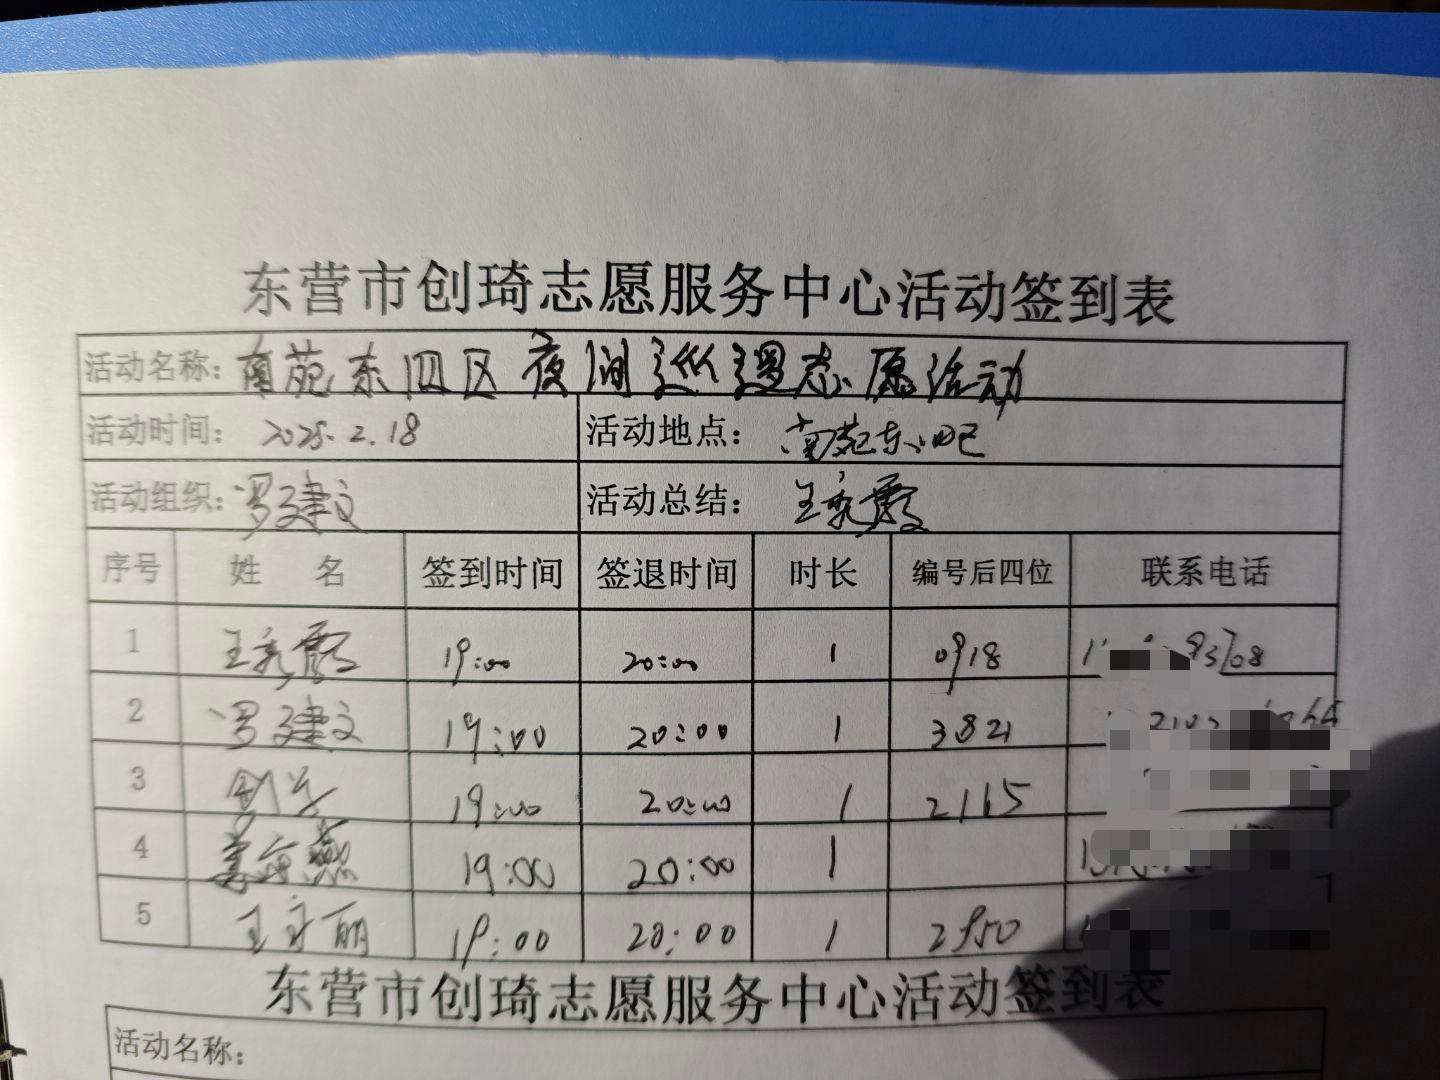 东营市创琦志愿服务中心活动签到表
活动名称：南苑东四区夜间巡逻志愿活动
活动时间：2025.2.18 活动地点：南苑东四区
活动组织：罗建文 活动总结：王秀霞
序号 姓 名 签到时间 签退时间 时长 编号后四位 联系电话
1 王秀霞 19:00 20:00 1 0918
2 罗建文 19:00 20:00 1 3821
3 19:00 20:00 1 2115
4 19:00 20:00 1
5 王立丽 19:00 20:00 1 2950
东营市创琦志愿服务中心活动签到表
活动名称：